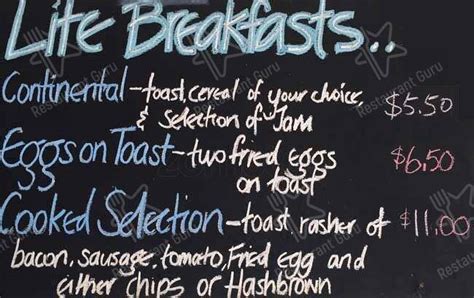 Lite Breakfasts..
Continental - toast, cereal of your choice, $5.50
& Selection of Jam
Eggs on Toast - two fried eggs $6.50
on toast
Cooked Selection - toast rasher of $11.00
bacon, sausage, tomato, Fried egg and
either chips or Hashbrown
Restaurant Guru